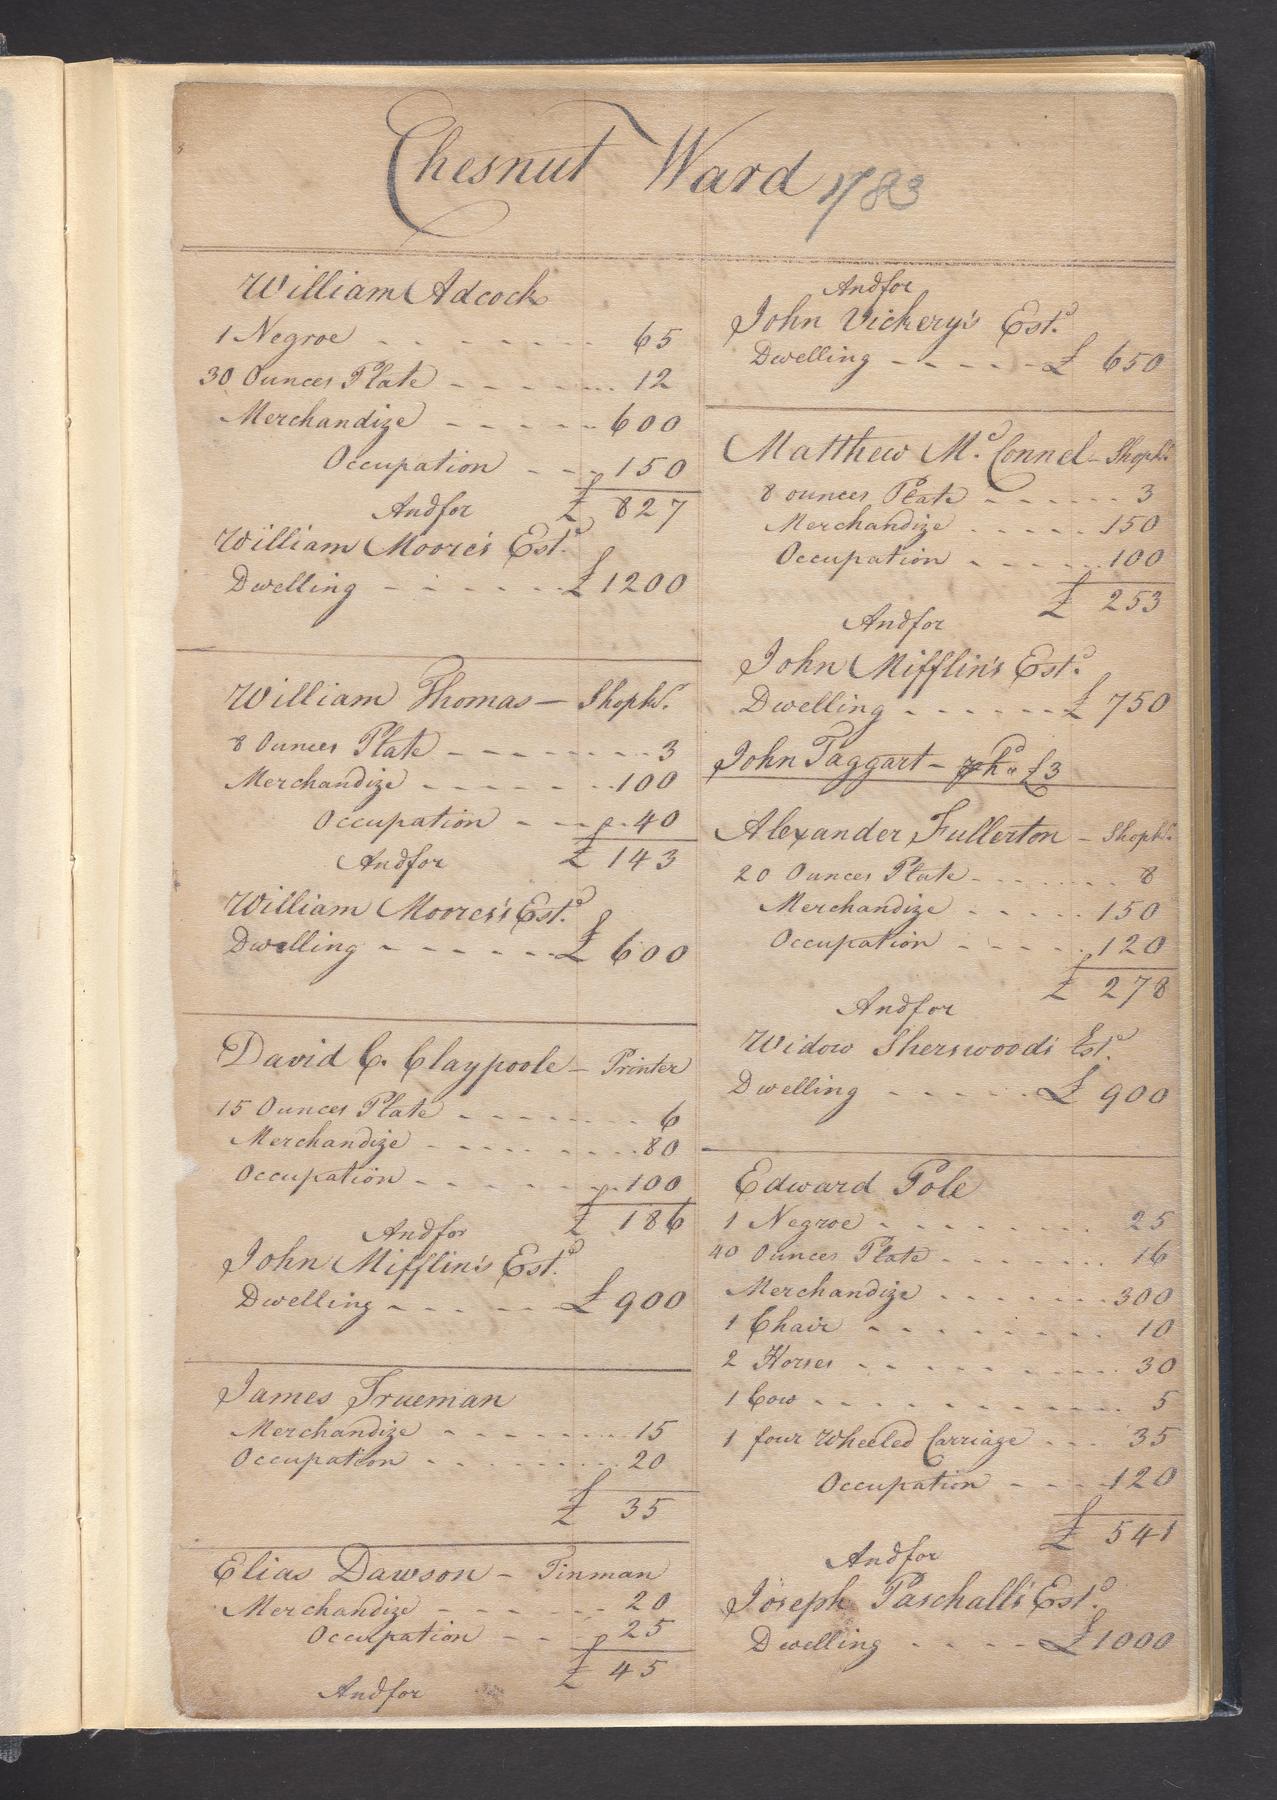 Chesnut Ward 1783
William Adcock
1 Negroe - - - - - - - 65
30 Ounces Plate - - - - - - 12
Merchandize - - - - - 600
Occupation - - - 150
£ 827
Andfor
William Moore's Est.d
Dwelling - - - - - - £ 1200
William Thomas - Shopkr.
8 Ounces Plate - - - - - - - 3
Merchandize - - - - - - - 100
Occupation - - - - 40
£ 143
Andfor
William Moores's Est.d
Dwelling - - - - - £ 600
David C. Claypoole - Printer
15 Ounces Plate - - - - - - - 6
Merchandize - - - - - - - 80
Occupation - - - - - - 100
£ 186
Andfor
John Mifflin's Est.d
Dwelling - - - - - £ 900
James Trueman
Merchandize - - - - - - - 15
Occupation - - - - - - - 20
£ 35
Elias Dawson - Tinman
Merchandize - - - - - - 20
Occupation - - - 25
£ 45
Andfor
Andfor
John Vickery's Est.d
Dwelling - - - - - £ 650
Matthew Mc. Connel - Shopkr.
8 ounces Plate - - - - - - 3
Merchandize - - - - - 150
Occupation - - - - - 100
£ 253
Andfor
John Mifflin's Est.d
Dwelling - - - - - - £ 750
John Taggart - £3
Alexander Fullerton - Shopkr.
20 Ounces Plate - - - - - - - 8
Merchandize - - - - - 150
Occupation - - - - - 120
£ 278
Andfor
Widow Sherswoods Est.d
Dwelling - - - - - - £ 900
Edward Pole
1 Negroe - - - - - - - - 25
40 Ounces Plate - - - - - - - 16
Merchandize - - - - - - - 300
1 Chair - - - - - - - - 10
2 Horses - - - - - - - - 30
1 Cow - - - - - - - - - - - 5
1 four Wheeled Carriage - - - 35
Occupation - - - - 120
£ 541
Andfor
Joseph Paschall's Est.d
Dwelling - - - - - £ 1000